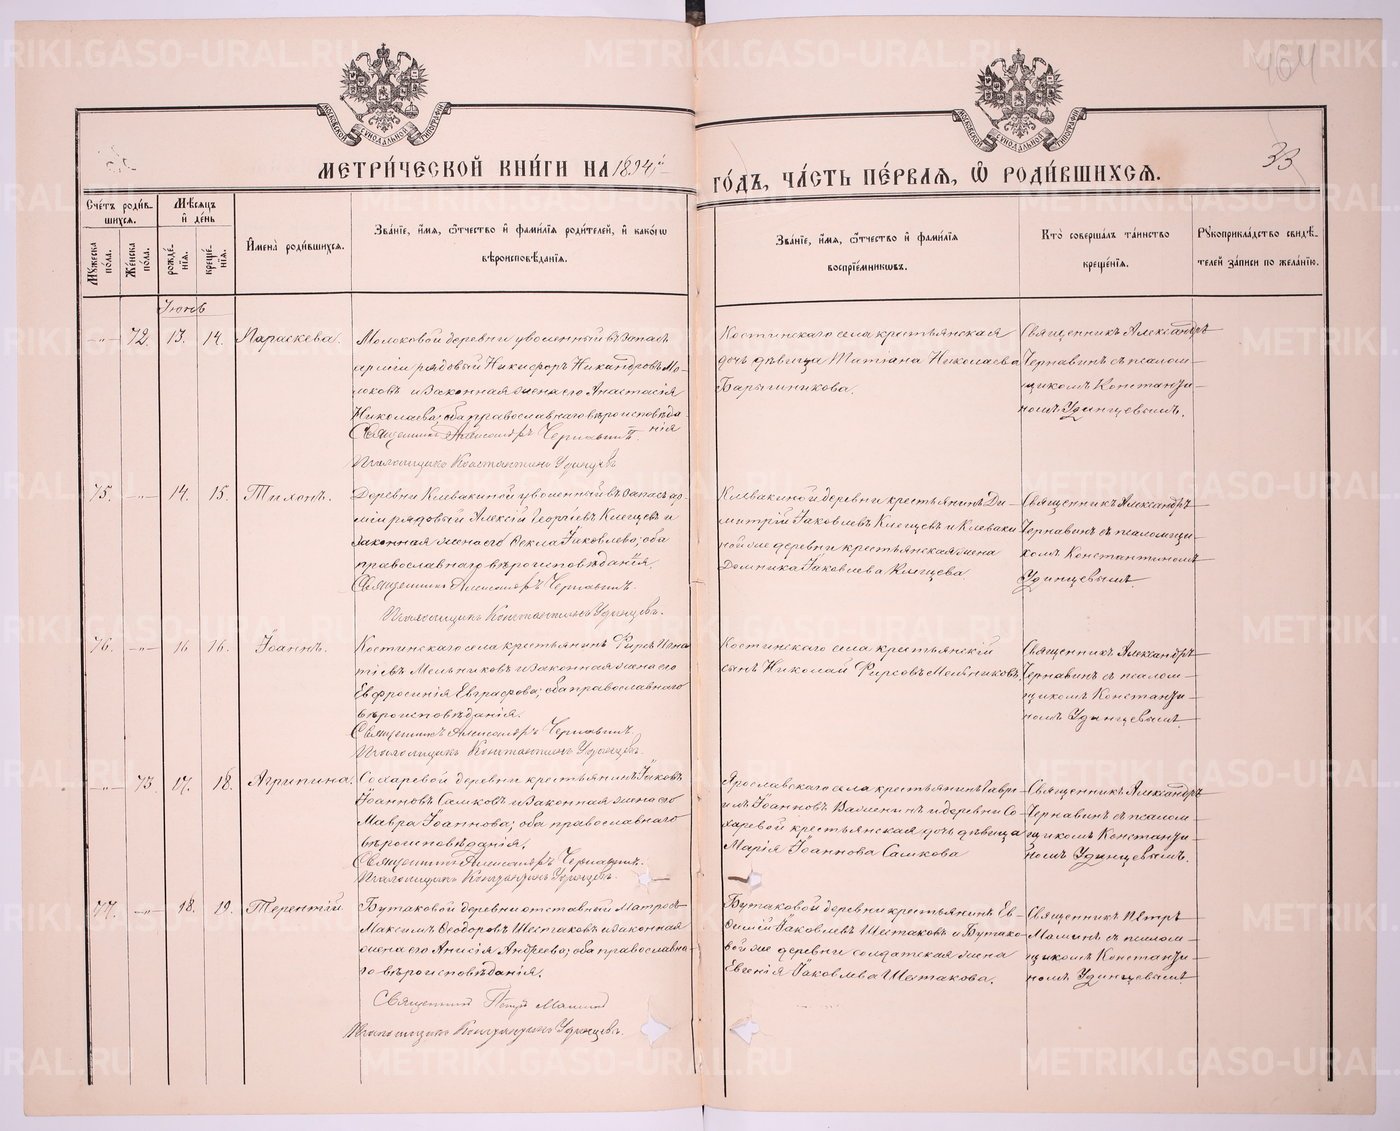 МЕТРИ́ЧЕСКОЙ КНИ́ГИ НА 1894й
ГО́ДЪ, ЧА́СТЬ ПЕ́РВАЯ, Ѽ РОДИ́ВШИХСЯ.
33
164
МОСКОВСКОЙ СѴНОДАЛЬНОЙ ТИПОГРАФІИ
МОСКОВСКОЙ СѴНОДАЛЬНОЙ ТИПОГРАФІИ
Сче́тъ роди́вшихся.
Му́жеска по́ла.
Же́нска по́ла.
Мѣ́сяцъ и҆ де́нь
рожде́нїя.
креще́нїя.
И҆мена̀ роди́вшихся.
Зва́нїе, и҆́мя, ѻ҆́тчество и҆ фами́лїя роди́телей, и҆ како́гѡ
вѣроисповѣ́данїя.
Зва́нїе, и҆́мя, ѻ҆́тчество и҆ фами́лїя
воспрїе́мникѡвъ.
Кто̀ соверша́лъ та́инство
креще́нїя.
Рꙋкоприкла́дство свидѣ́телей за́писи по жела́нїю.
Іюнь
-"- 72. 13. 14. Параскева.
Молоковой деревни уволенный въ запасъ
арміи рядовый Никифоръ Никандровъ Мо-
локовъ и законная жена его Анастасія
Николаева; оба православнаго вѣроисповѣда-
нія
Священникъ Александръ Чернавинъ
Псаломщикъ Константинъ Удинцевъ
Костинскаго села крестьянская
дочь дѣвица Татіана Николаева
Барышникова.
Священникъ Александръ
Чернавинъ съ псалом-
щикомъ Константи-
номъ Удинцевымъ.
75. -"- 14. 15. Тихонъ.
Деревни Клевакиной уволенный въ запасъ ар-
міи рядовый Алексій Георгіевъ Клещевъ и
законная жена его Ѳекла Іаковлева; оба
православнаго вѣроисповѣданія.
Священникъ Александръ Чернавинъ.
Псаломщикъ Константинъ Удинцевъ.
Клевакиной деревни крестьянинъ Ди-
митрій Іаковлевъ Клещевъ и Клеваки-
ной же деревни крестьянская жена
Домника Іаковлева Клещева
Священникъ Александръ
Чернавинъ съ псаломщи-
комъ Константиномъ
Удинцевымъ
76. -"- 16 16. Іоаннъ.
Костинскаго села крестьянинъ Фирсъ Игна-
тіевъ Мельниковъ и законная жена его
Евфросинія Евграфова; оба православнаго
вѣроисповѣданія.
Священникъ Александръ Чернавинъ.
Псаломщикъ Константинъ Удинцевъ.
Костинскаго села крестьянскій
сынъ Николай Фирсовъ Мельниковъ.
Священникъ Александръ
Чернавинъ съ псалом-
щикомъ Константи-
номъ Удинцевымъ.
-"- 73. 17. 18. Агрипина.
Сохаревой деревни крестьянинъ Іаковъ
Іоанновъ Самковъ и законная жена его
Мавра Іоаннова; оба православнаго
вѣроисповѣданія.
Священникъ Александръ Чернавинъ.
Псаломщикъ Константинъ Удинцевъ.
Ярославскаго села крестьянинъ Гаврі-
илъ Іоанновъ и деревни Со-
харевой крестьянская дочь дѣвица
Марія Іоаннова Самкова
Священникъ Александръ
Чернавинъ съ псалом-
щикомъ Константи-
номъ Удинцевымъ.
77. -"- 18. 19. Терентій.
Бутаковой деревни отставный матросъ
Максимъ Ѳеодоровъ Шестаковъ и законная
жена его Анисія Андреева; оба православна-
го вѣроисповѣданія.
Священникъ Петръ Мамин
Псаломщикъ Константинъ Удинцевъ.
Бутаковой деревни крестьянинъ Ев-
ѳимій Іаковлевъ Шестаковъ и Бутако-
вой же деревни солдатская жена
Евгенія Іаковлева Шестакова.
Священникъ Петръ
Маминъ съ псалом-
щикомъ Константи-
номъ Удинцевымъ
METRIKI.GASO-URAL.RU